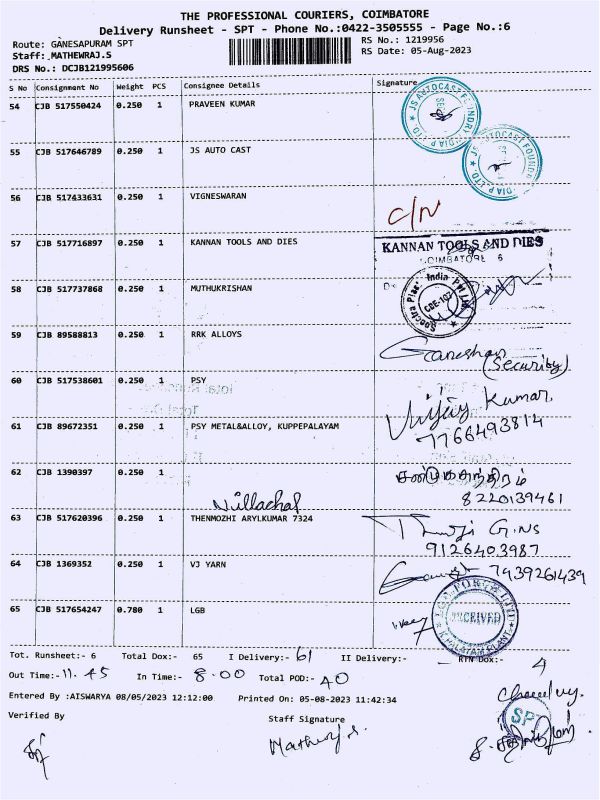 THE PROFESSIONAL COURIERS, COIMBATORE
Delivery Runsheet - SPT - Phone No.:0422-3505555 - Page No.:6
Route: GANESAPURAM SPT
RS No.: 1219956
Staff: MATHEWRAJ.S
RS Date: 05-Aug-2023
DRS No.: DCJB121995606
S No Consignment No Weight PCS Consignee Details Signature
54 CJB 517550424 0.250 1 PRAVEEN KUMAR
55 CJB 517646789 0.250 1 JS AUTO CAST
56 CJB 517433631 0.250 1 VIGNESWARAN
C/N
57 CJB 517716897 0.250 1 KANNAN TOOLS AND DIES
KANNAN TOOLS AND DIES
COIMBATORE 6
58 CJB 517737868 0.250 1 MUTHUKRISHAN
Spectra Plas' India Pvt Ltd
CBE-107
59 CJB 89588813 0.250 1 RRK ALLOYS
Ganeshan
(Security)
60 CJB 517538601 0.250 1 PSY
Vijay Kumar
7766493814
61 CJB 89672351 0.250 1 PSY METAL&ALLOY, KUPPEPALAYAM
62 CJB 1390397 0.250 1
8220139461
63 CJB 517620396 0.250 1 THENMOZHI ARYLKUMAR 7324
9126403987
64 CJB 1369352 0.250 1 VJ YARN
7939261439
65 CJB 517654247 0.780 1 LGB
RECEIVED
Tot. Runsheet:- 6 Total Dox:- 65 I Delivery:- 61 II Delivery:- RTN Dox:- 4
Out Time:- 11.45 In Time:- 8.00 Total POD:- 40
Entered By :AISWARYA 08/05/2023 12:12:00 Printed On: 05-08-2023 11:42:34
Verified By Staff Signature
SPT